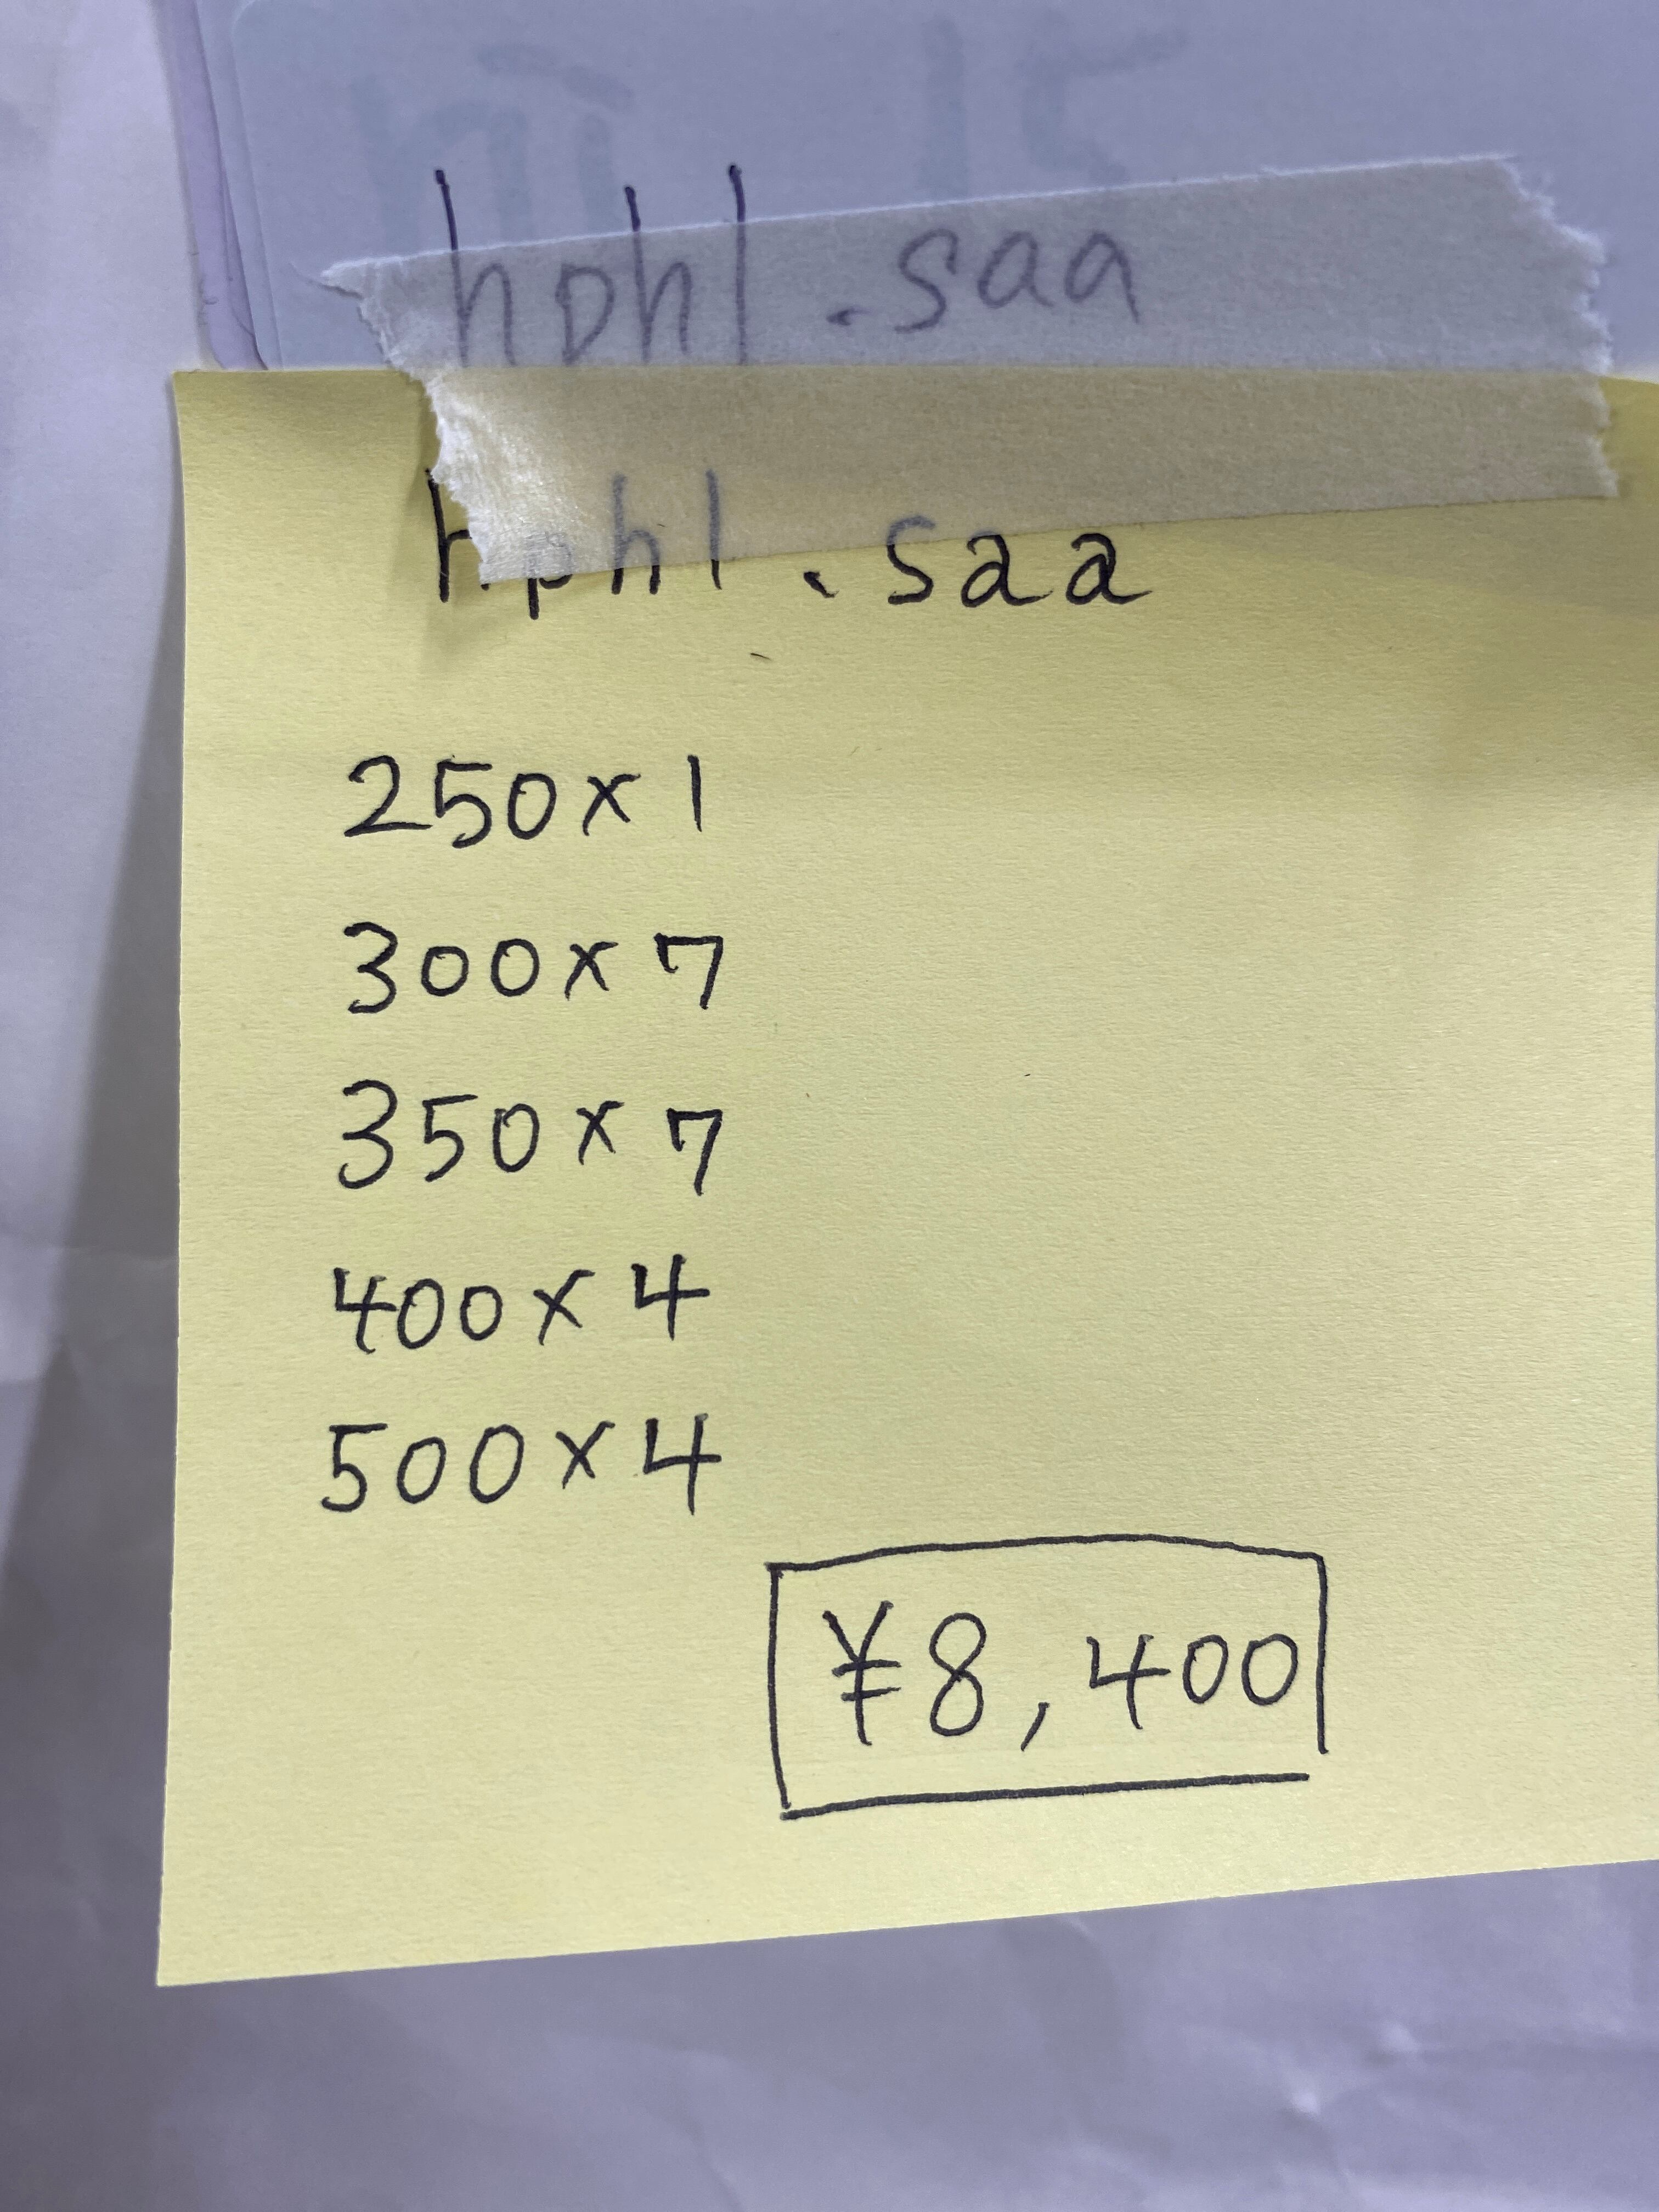 hphl.saa
hphl.saa
250×1
300×7
350×7
400×4
500×4
¥8,400